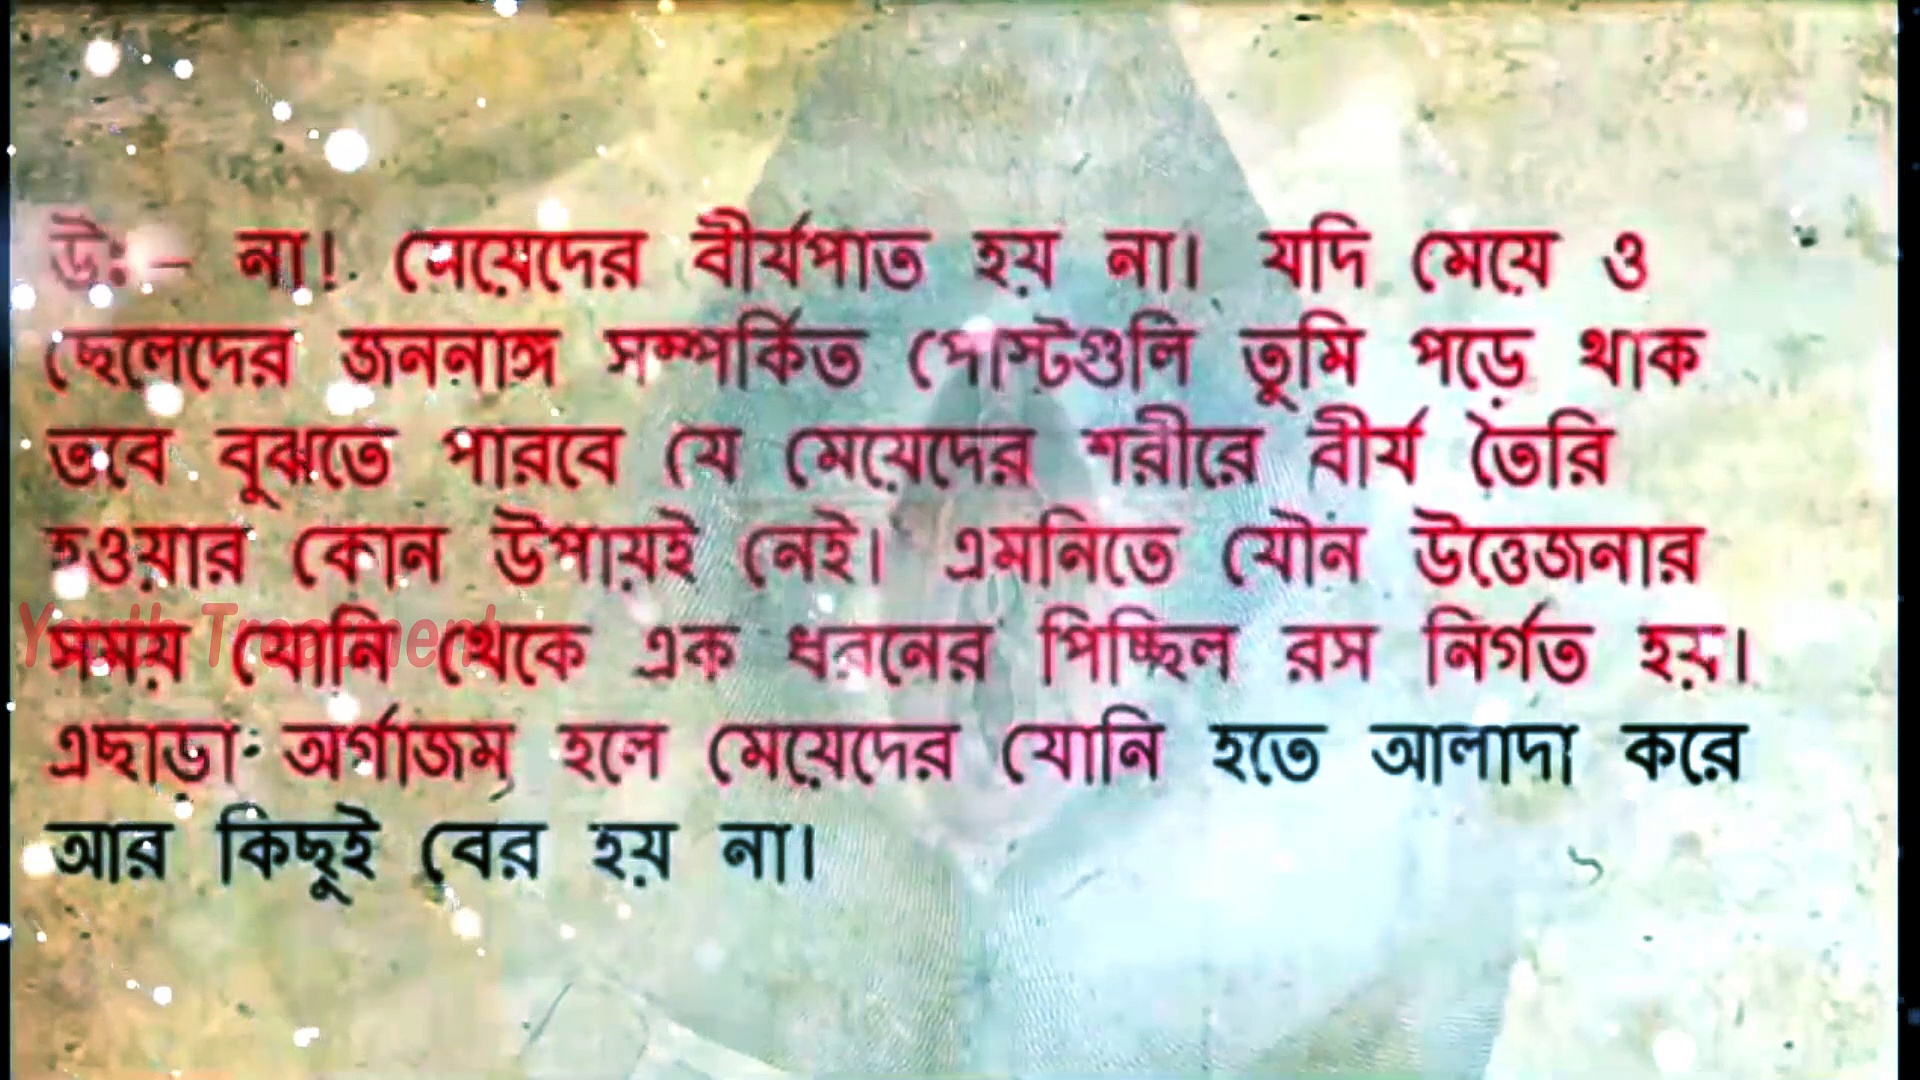 উঃ- না! মেয়েদের বীর্যপাত হয় না। যদি মেয়ে ও
ছেলেদের জননাঙ্গ সম্পর্কিত পোস্টগুলি তুমি পড়ে থাক
তবে বুঝতে পারবে যে মেয়েদের শরীরে বীর্য তৈরি
হওয়ার কোন উপায়ই নেই। এমনিতে যৌন উত্তেজনার
সময় যোনি থেকে এক ধরনের পিচ্ছিল রস নির্গত হয়।
Youth Treatment
এছাড়া অর্গাজম্ হলে মেয়েদের যোনি হতে আলাদা করে
আর কিছুই বের হয় না।